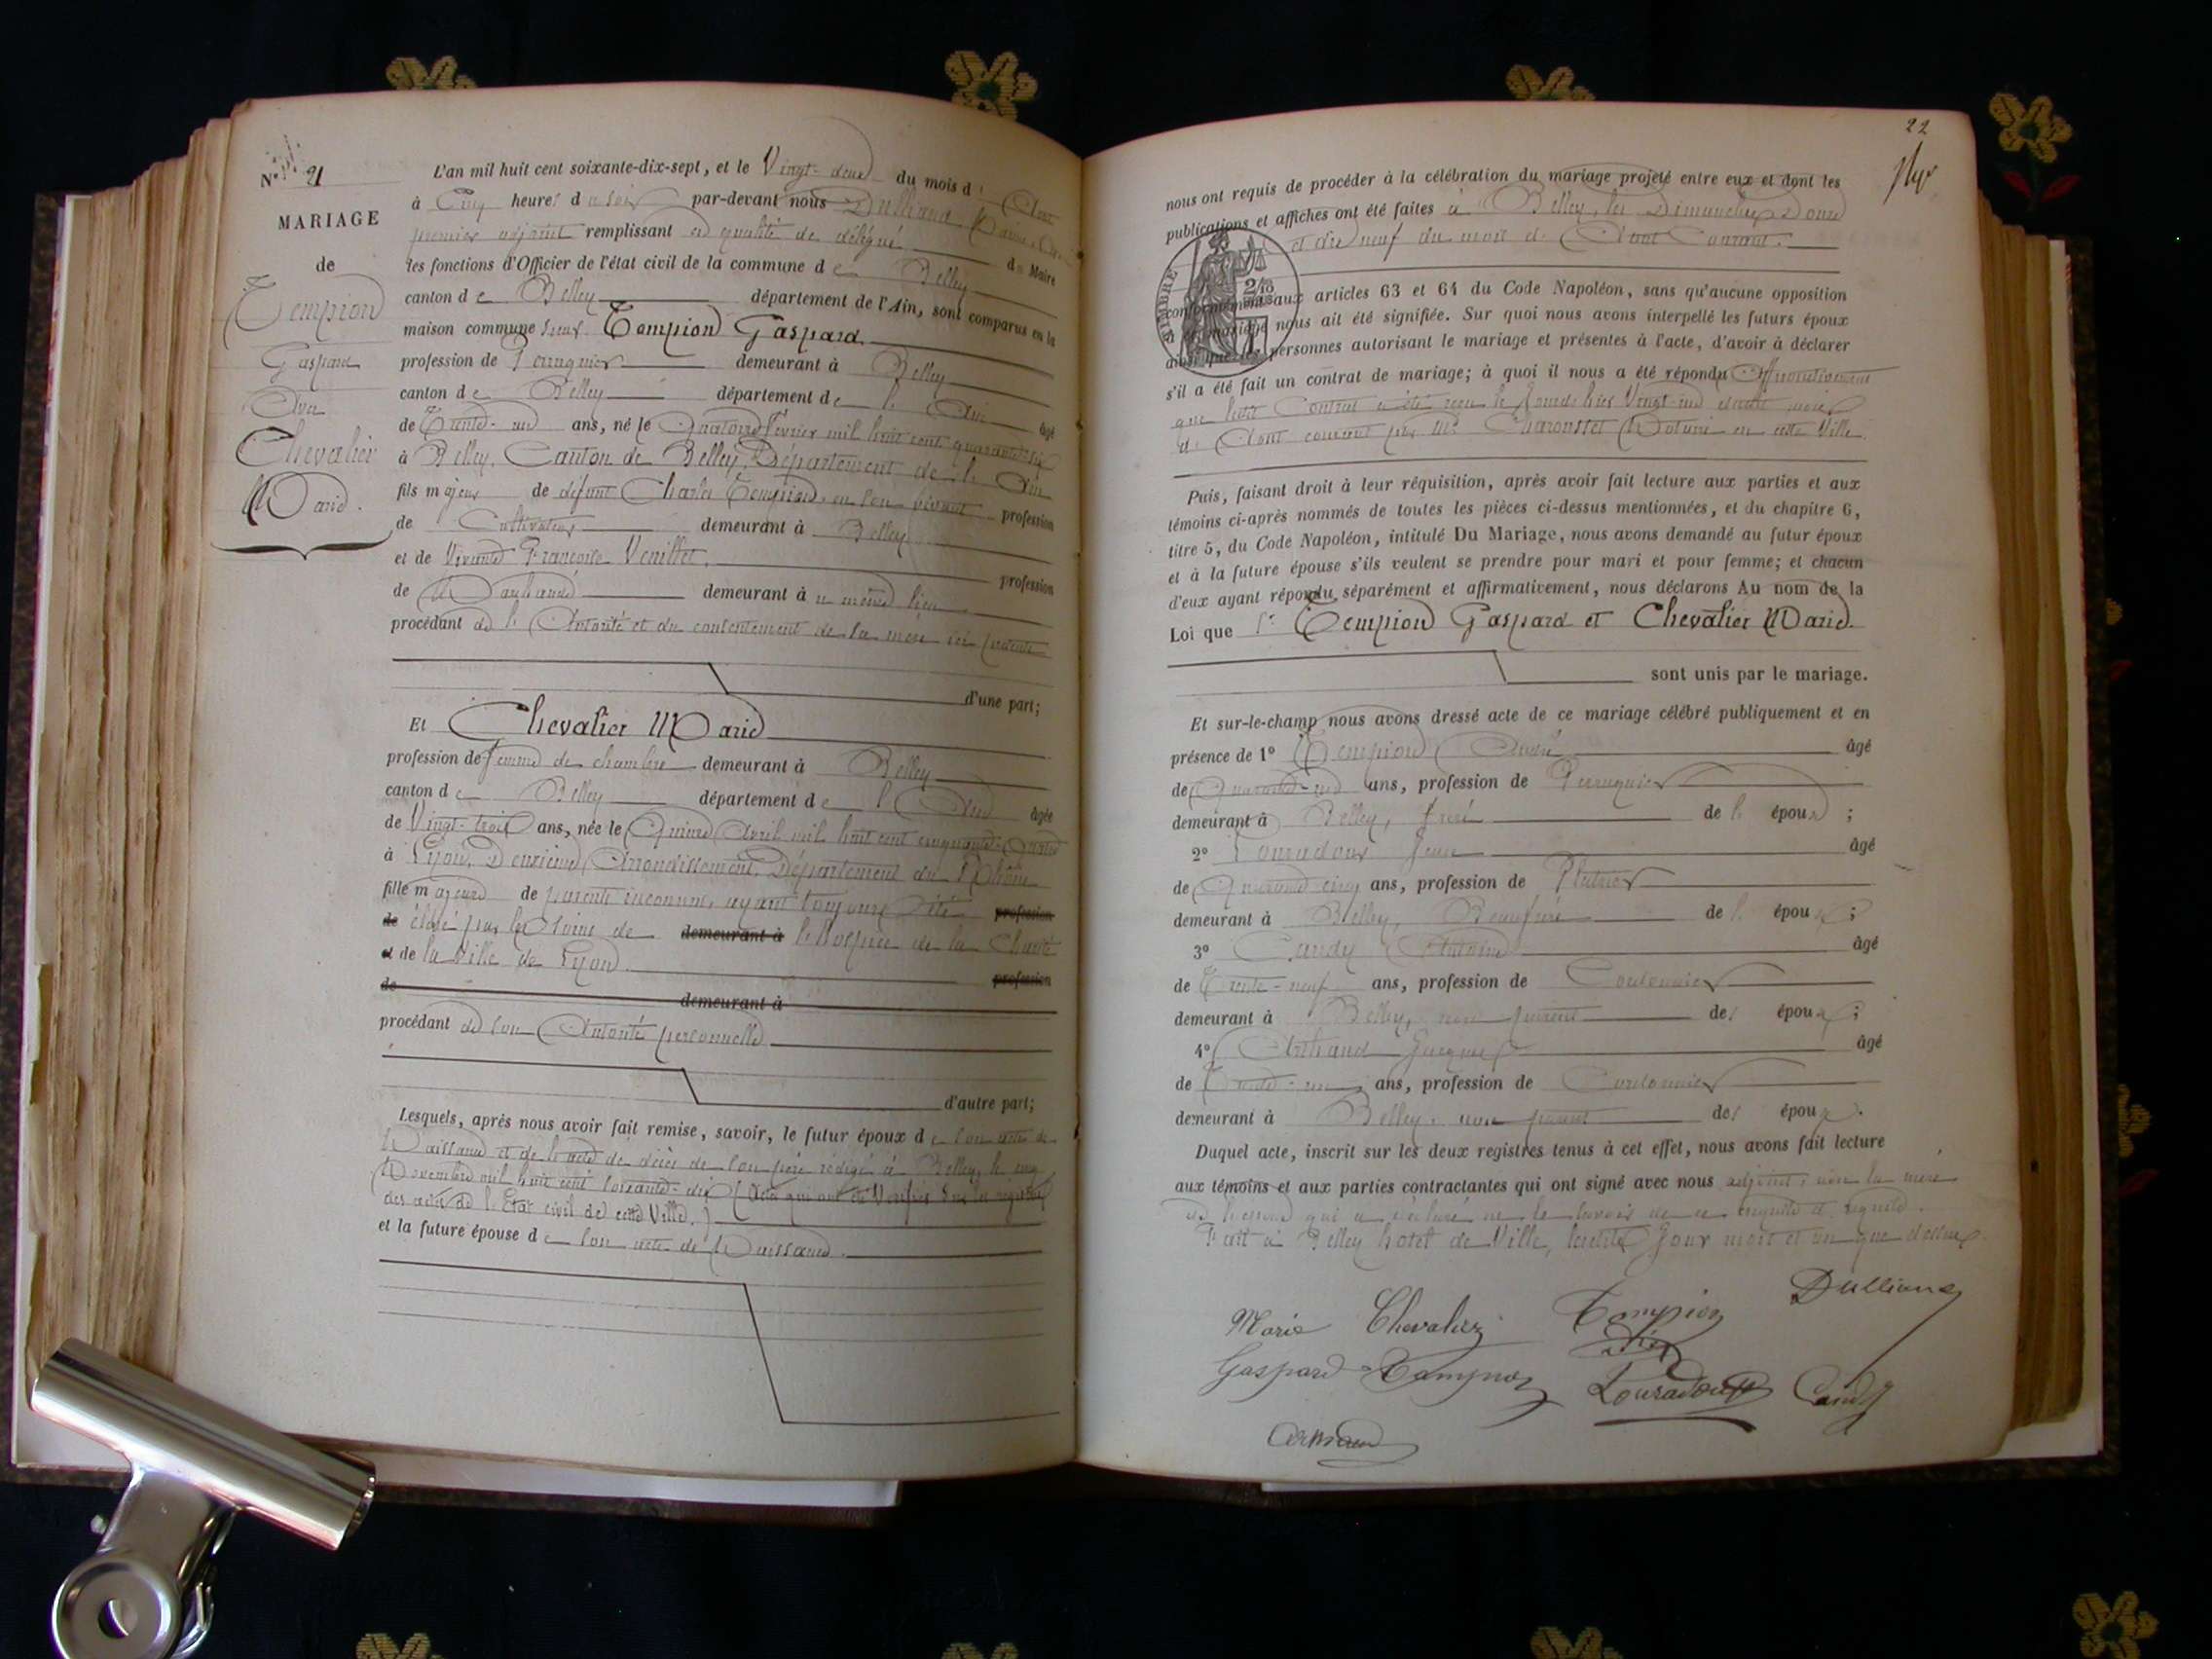 N° 21
MARIAGE
de
Tempion
Gaspard
Avec
Chevalier
Marie.
L'an mil huit cent soixante-dix-sept, et le Vingt-deux du mois d'Aout
à Cinq heures du soir par-devant nous Dulliand
premier adjoint remplissant en qualité de délégué du Maire
les fonctions d'Officier de l'état civil de la commune de Belley
canton de Belley département de l'Ain, sont comparus en la
maison commune sieur Tempion Gaspard.
profession de Perruquier demeurant à Belley
canton de Belley département de l'Ain âgé
de Trente-un ans, né le Quatorze Février mil huit cent quarante-six
à Belley, Canton de Belley, Département de l'Ain
fils majeur de défunt Charles Tempion, en son vivant profession
de Cultivateur demeurant à Belley
et de Vivante Françoise Veuillet, profession
de demeurant à même lieu
procédant de l'Autorité et du consentement de sa mère ici présente
d'une part;
Et Chevalier Marie
profession de femme de chambre demeurant à Belley
canton de Belley département de l'Ain âgée
de Vingt-trois ans, née le Quinze Avril mil huit cent cinquante-quatre
à Lyon, Deuxième Arrondissement, Département du Rhône
fille majeure de parents inconnus, ayant toujours été profession
de élevé par les soins de demeurant à l'Hospice de la Charité
et de la Ville de Lyon. profession
de demeurant à
procédant de son Autorité personnelle
d'autre part;
Lesquels, après nous avoir fait remise, savoir, le futur époux de son acte de
Naissance et de l'acte de décès de son père rédigé à Belley le cinq
Novembre mil huit cent soixante-dix (Actes qui ont été Vérifiés sur les registres
des actes de l'Etat civil de cette Ville.)
et la future épouse de son acte de Naissance.
22
nous ont requis de procéder à la célébration du mariage projeté entre eux et dont les
publications et affiches ont été faites à Belley, les Dimanches Douze
et dix neuf du mois d'Aout Courant.
TIMBRE
conformément aux articles 63 et 64 du Code Napoléon, sans qu'aucune opposition
au mariage nous ait été signifiée. Sur quoi nous avons interpellé les futurs époux
ainsi que les personnes autorisant le mariage et présentes à l'acte, d'avoir à déclarer
s'il a été fait un contrat de mariage; à quoi il nous a été répondu Affirmativement
que ledit Contrat a été reçu le hier Vingt-un dudit mois
d'Aout courant par Me Notaire en cette Ville.
Puis, faisant droit à leur réquisition, après avoir fait lecture aux parties et aux
témoins ci-après nommés de toutes les pièces ci-dessus mentionnées, et du chapitre 6,
titre 5, du Code Napoléon, intitulé Du Mariage, nous avons demandé au futur époux
et à la future épouse s'ils veulent se prendre pour mari et pour femme; et chacun
d'eux ayant répondu séparément et affirmativement, nous déclarons Au nom de la
Loi que Sr Tempion Gaspard et Chevalier Marie.
sont unis par le mariage.
Et sur-le-champ nous avons dressé acte de ce mariage célébré publiquement et en
présence de 1° Tempion André âgé
de Quarante-un ans, profession de Perruquier
demeurant à Belley, frère de l'époux;
2° Louradour Jean âgé
de Quarante cinq ans, profession de Platrier
demeurant à Belley, Beaufrère de l'époux;
3° Candy Antoine âgé
de Trente-neuf ans, profession de Cordonnier
demeurant à Belley, non parent des époux;
4° Jacques âgé
de Trente-un ans, profession de Cordonnier
demeurant à Belley, non parent des époux.
Duquel acte, inscrit sur les deux registres tenus à cet effet, nous avons fait lecture
aux témoins et aux parties contractantes qui ont signé avec nous adjoint, non la mère
de l'époux qui a déclaré ne le savoir de ce enquise et requise.
Fait à Belley hotel de Ville, lesdits Jour mois et an que dessus.
Marie Chevalier Tempion Dulliand
Gaspard Tempion Louradour Candy